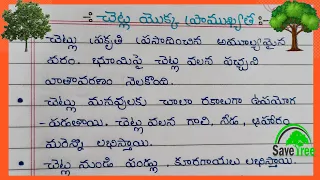 -: చెట్లు యొక్క ప్రాముఖ్యత :-
చెట్లు ప్రకృతి ప్రసాదించిన అమూల్యమైన
వరం. భూమిపై చెట్ల వలన పచ్చని
వాతావరణం నెలకొంది.
చెట్లు మానవులకు చాలా రకాలుగా ఉపయోగ
-పడతాయి. చెట్ల వలన గాలి, నీడ, ఆహారం
మరెన్నో లభిస్తాయి.
చెట్ల నుండి పండ్లు, కూరగాయలు లభిస్తాయి.
Save Tree